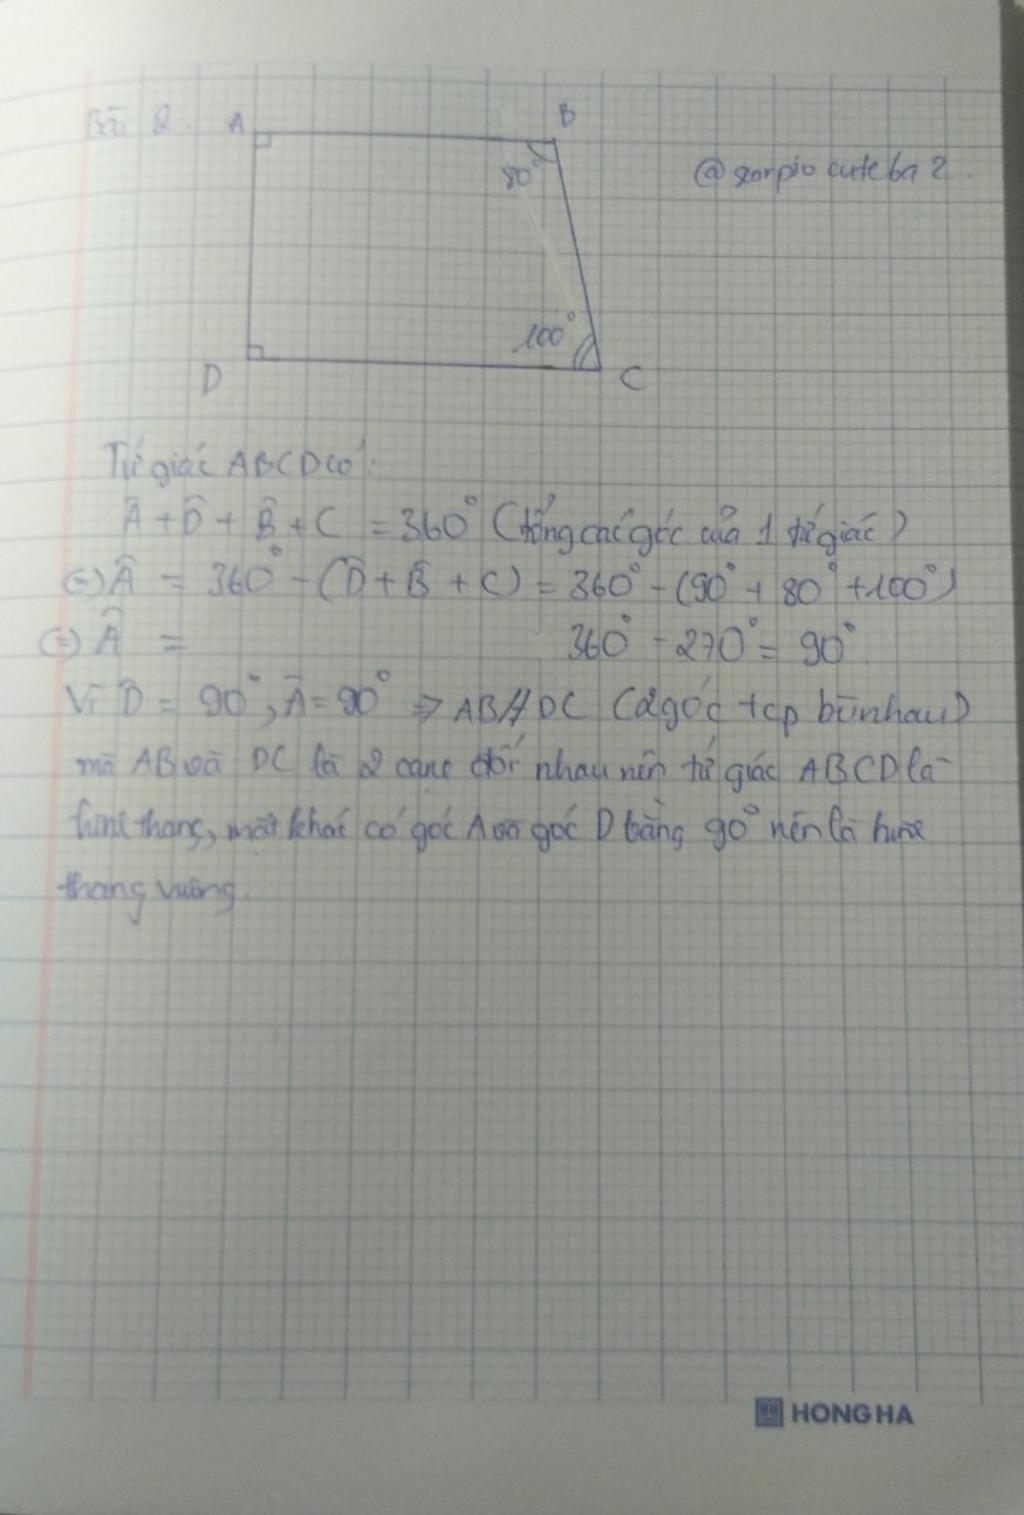 Bài 2.
A
B
80°
@scorpio cute ba 2.
100°
D
C
Tứ giác ABCD có:
Â + D̂ + B̂ + C = 360° (tổng các góc của 1 tứ giác)
(=) Â = 360° - (D̂ + B̂ + C) = 360° - (90° + 80° + 100°)
(=) Â = 360° - 270° = 90°
Vì D̂ = 90°, Â = 90° => AB // DC (2 góc tcp bù nhau)
mà AB và DC là 2 cạnh đối nhau nên tứ giác ABCD là
hình thang, mặt khác có góc A và góc D bằng 90° nên là hình
thang vuông.
HONG HA